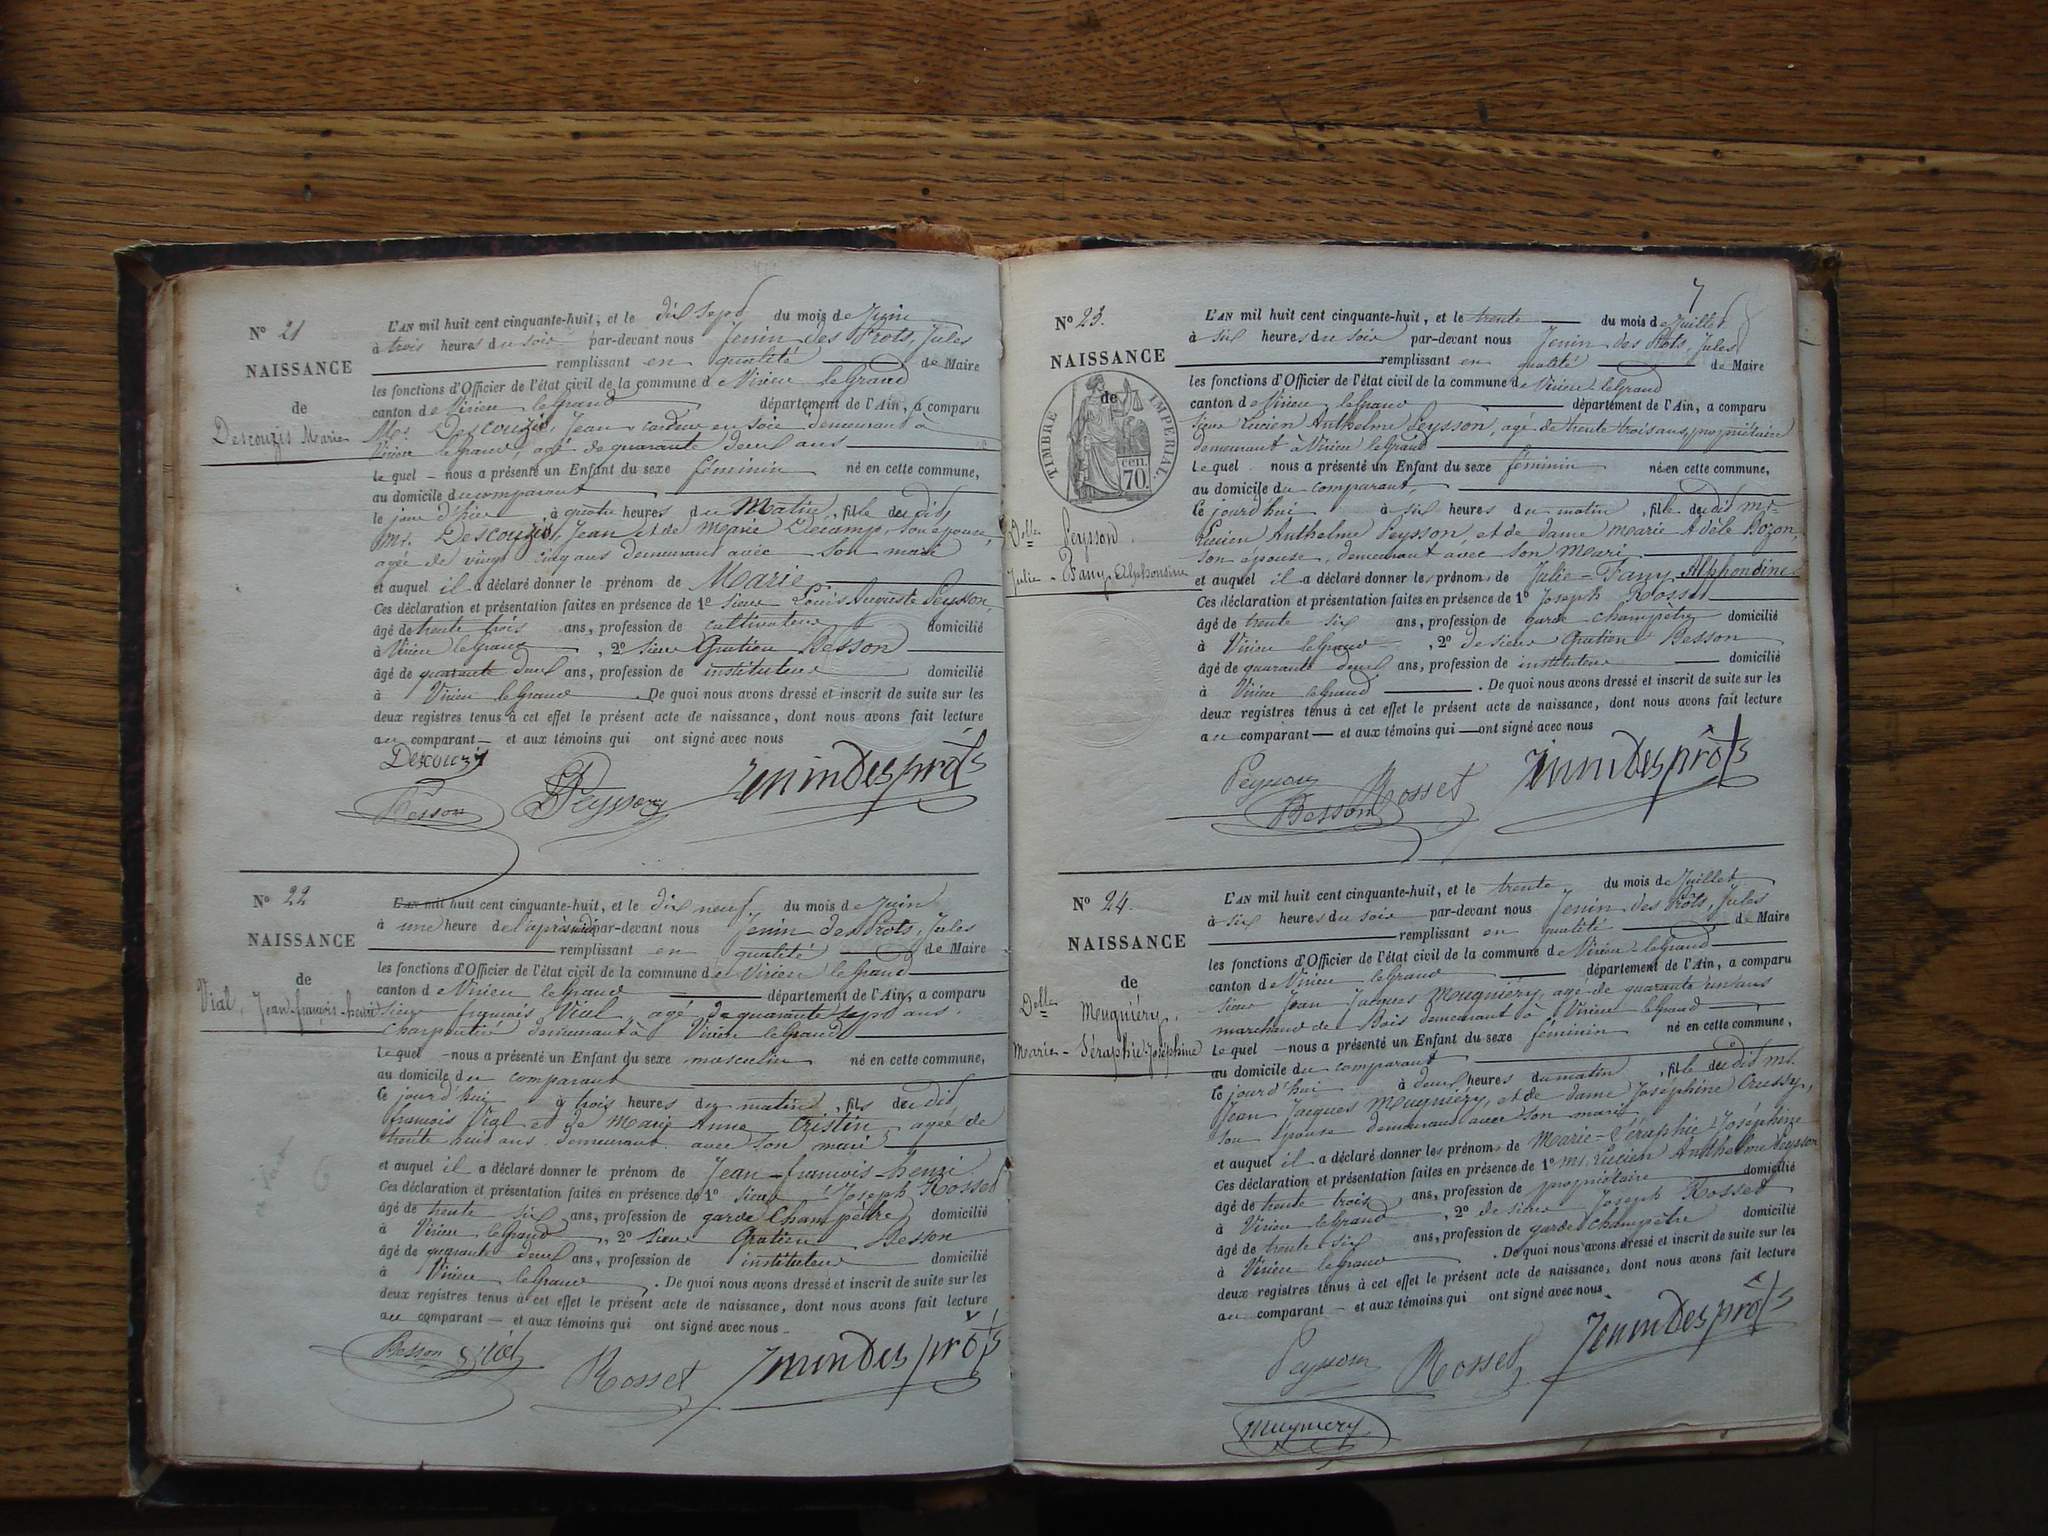 N° 21
NAISSANCE
de
Descouzis Marie
L'AN mil huit cent cinquante-huit, et le dix sept du mois de Juin
à trois heures du soir par-devant nous Jenin des Prots, Jules
remplissant en qualité de Maire
les fonctions d'Officier de l'état civil de la commune de Virieu le Grand
canton de Virieu le Grand département de l'Ain, a comparu
Mr. Descouzis, Jean cardeur en soie demeurant à
Virieu le Grand, agé de quarante deux ans
le quel nous a présenté un Enfant du sexe féminin né en cette commune,
au domicile du comparant
le jour d'hier à quatre heures du Matin, fille du dit
mr. Descouzis, Jean et de Marie Decamp, son épouse,
agée de vingt cinq ans demeurant avec son mari
et auquel il a déclaré donner le prénom de Marie
Ces déclaration et présentation faites en présence de 1° Sieur Louis Auguste Peysson,
âgé de trente trois ans, profession de cultivateur domicilié
à Virieu le Grand, 2° Sieur Gratien Besson
âgé de quarante deux ans, profession de instituteur domicilié
à Virieu le Grand. De quoi nous avons dressé et inscrit de suite sur les
deux registres tenus à cet effet le présent acte de naissance, dont nous avons fait lecture
au comparant et aux témoins qui ont signé avec nous
Descouzis
Besson Peysson Jenin des prôts
N° 22
NAISSANCE
de
Vial, Jean-françois-henri
L'AN mil huit cent cinquante-huit, et le dix neuf du mois de Juin
à une heure de l'après midi par-devant nous Jenin des Prots, Jules
remplissant en qualité de Maire
les fonctions d'Officier de l'état civil de la commune de Virieu le Grand
canton de Virieu le Grand département de l'Ain, a comparu
Sieur françois Vial, agé de quarante sept ans.
Charpentier demeurant à Virieu le Grand
le quel nous a présenté un Enfant du sexe masculin né en cette commune,
au domicile du comparant
ce jourd'hui à trois heures du matin, fils du dit
françois Vial et de Marie Anne Tristin, agée de
trente huit ans, demeurant avec son mari
et auquel il a déclaré donner le prénom de Jean-françois-henri
Ces déclaration et présentation faites en présence de 1° sieur Joseph Rosset
âgé de trente six ans, profession de garde Champêtre domicilié
à Virieu le Grand, 2° sieur Gratien Besson
âgé de quarante deux ans, profession de instituteur domicilié
à Virieu le Grand. De quoi nous avons dressé et inscrit de suite sur les
deux registres tenus à cet effet le présent acte de naissance, dont nous avons fait lecture
au comparant et aux témoins qui ont signé avec nous
Besson Vial Rosset Jenin des prôts
7
N° 23.
NAISSANCE
de
TIMBRE IMPERIAL.
CEN. 70.
Delle Peysson
Julie-Fany Alphonsine
L'AN mil huit cent cinquante-huit, et le trente du mois de Juillet
à six heures du soir par-devant nous Jenin des Prots, Jules
remplissant en qualité de Maire
les fonctions d'Officier de l'état civil de la commune de Virieu-le Grand
canton de Virieu le Grand département de l'Ain, a comparu
Sieur Lucien Anthelme Peysson, agé de trente trois ans, propriétaire
demeurant à Virieu le Grand
le quel nous a présenté un Enfant du sexe féminin né en cette commune,
au domicile du comparant,
ce jourd'hui à six heures du matin, fille du dit mr
Lucien Anthelme Peysson, et de dame Marie Adèle Bozon,
son épouse, demeurant avec son Mari
et auquel il a déclaré donner les prénoms de Julie-Fany Alphonsine
Ces déclaration et présentation faites en présence de 1° Joseph Rosset
âgé de trente six ans, profession de garde champêtre domicilié
à Virieu le Grand, 2° de sieur Gratien Besson
âgé de quarante deux ans, profession de instituteur domicilié
à Virieu le Grand. De quoi nous avons dressé et inscrit de suite sur les
deux registres tenus à cet effet le présent acte de naissance, dont nous avons fait lecture
au comparant et aux témoins qui ont signé avec nous
Peysson Rosset Jenin des prôts
Besson
N° 24.
NAISSANCE
de
Delle Meugniéry,
Marie-Séraphie-Joséphine
L'AN mil huit cent cinquante-huit, et le trente du mois de Juillet
à six heures du soir par-devant nous Jenin des Prôts, Jules
remplissant en qualité de Maire
les fonctions d'Officier de l'état civil de la commune de Virieu-le Grand
canton de Virieu le Grand département de l'Ain, a comparu
Sieur Jean Jacques Meugniéry, agé de quarante un ans
marchand de Bois demeurant à Virieu le Grand
le quel nous a présenté un Enfant du sexe féminin né en cette commune,
au domicile du comparant
ce jourd'hui à deux heures du matin, fille du dit mr.
Jean Jacques Meugniéry, et de dame Joséphine
son épouse demeurant avec son mari
et auquel il a déclaré donner les prénoms de Marie-Séraphie-Joséphine
Ces déclaration et présentation faites en présence de 1° mr. Lucien Anthelme Peysson
âgé de trente trois ans, profession de propriétaire domicilié
à Virieu le Grand, 2° de sieur Joseph Rosset
âgé de trente six ans, profession de garde champêtre domicilié
à Virieu le Grand. De quoi nous avons dressé et inscrit de suite sur les
deux registres tenus à cet effet le présent acte de naissance, dont nous avons fait lecture
au comparant et aux témoins qui ont signé avec nous
Peysson Rosset Jenin des prôts
Meugniery